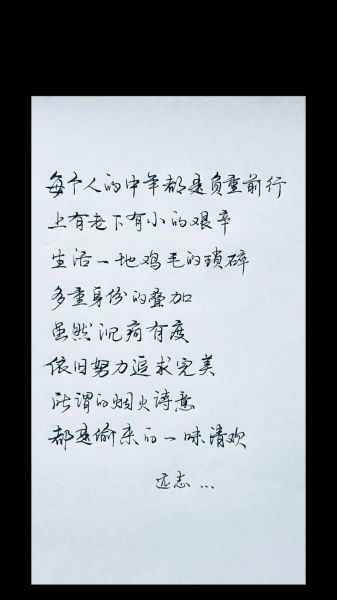 每个人的中年都是负重前行
上有老下有小的艰辛
生活一地鸡毛的琐碎
多重身份的叠加
虽然沉疴有度
依旧努力追求完美
所谓的烟火诗意
都是偷来的一味清欢
远志...